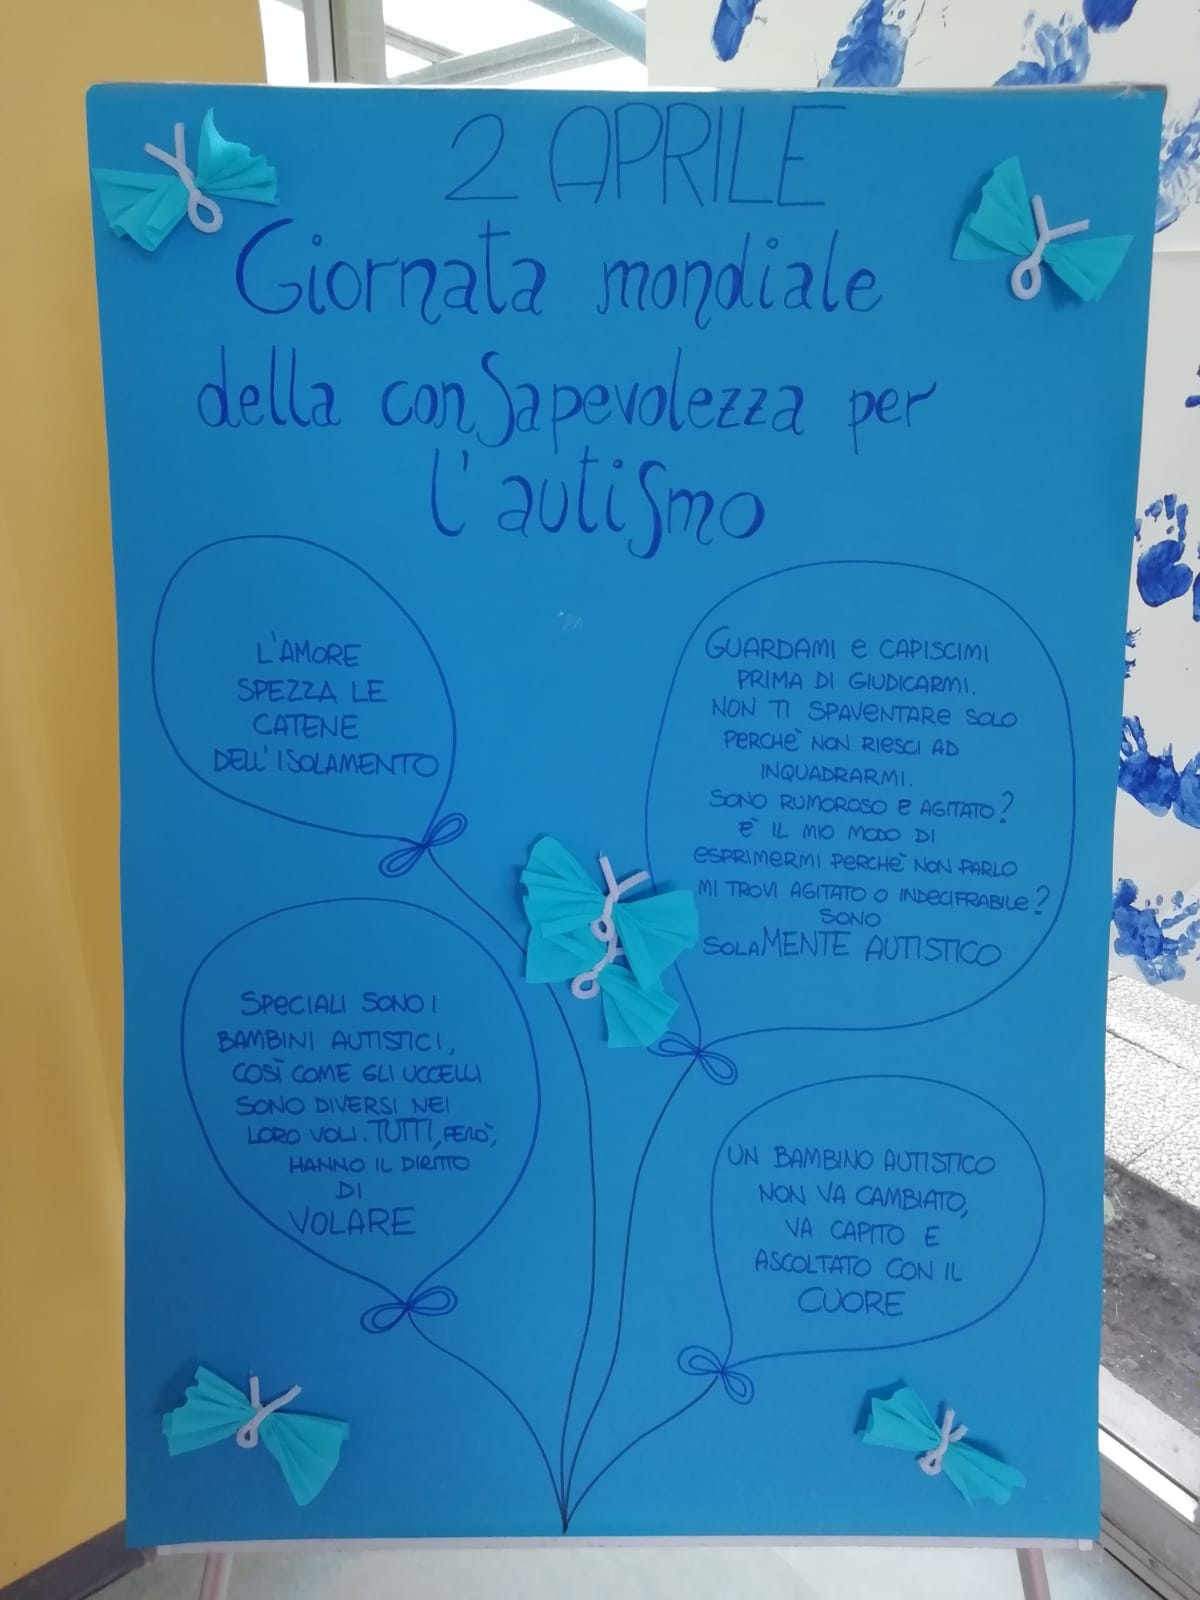 2 APRILE
Giornata mondiale
della conSapevolezza per
l'autiSmo
L'AMORE
SPEZZA LE
CATENE
DELL'ISOLAMENTO
GUARDAMI e CAPISCIMI
PRIMA DI GIUDICARMI.
NON TI SPAVENTARE SOLO
PERCHÈ NON RIESCI AD
INQUADRARMI.
SONO RUMOROSO E AGITATO?
È IL MIO MODO DI
ESPRIMERMI PERCHÈ NON PARLO
MI TROVI AGITATO O INDECIFRABILE?
SONO
SOLAMENTE AUTISTICO
SPECIALI SONO I
BAMBINI AUTISTICI,
COSÌ COME GLI UCCELLI
SONO DIVERSI NEI
LORO VOLI. TUTTI, PERÒ,
HANNO IL DIRITTO
DI
VOLARE
UN BAMBINO AUTISTICO
NON VA CAMBIATO,
VA CAPITO E
ASCOLTATO CON IL
CUORE